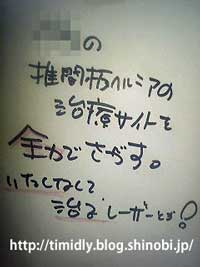 の
椎間板ヘルニアの
治療サイトを
全力でさがす。
いたくなくて
治る レーザーとか!
http://timidly.blog.shinobi.jp/